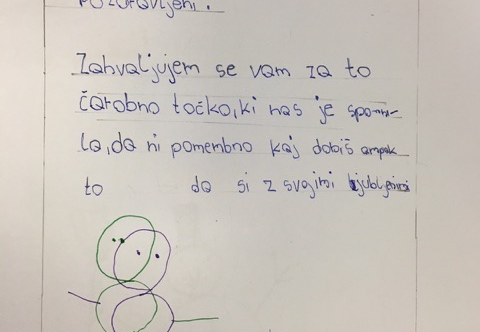 Pozdravljeni.
Zahvaljujem se vam za to
čarobno točko, ki nas je spomni-
la, da ni pomembno kaj dobiš ampak
to da si z svojimi ljubljenimi